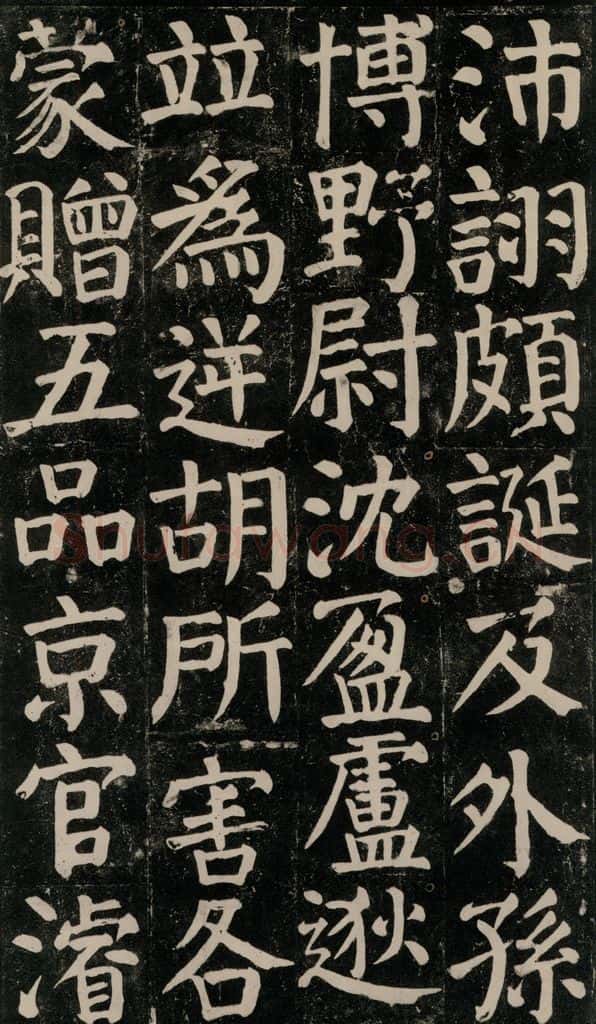 沛詡頗誕及外孫
博野尉沈盈盧逖
竝為逆胡所害各
蒙贈五品京官濬
Shufawang.CN